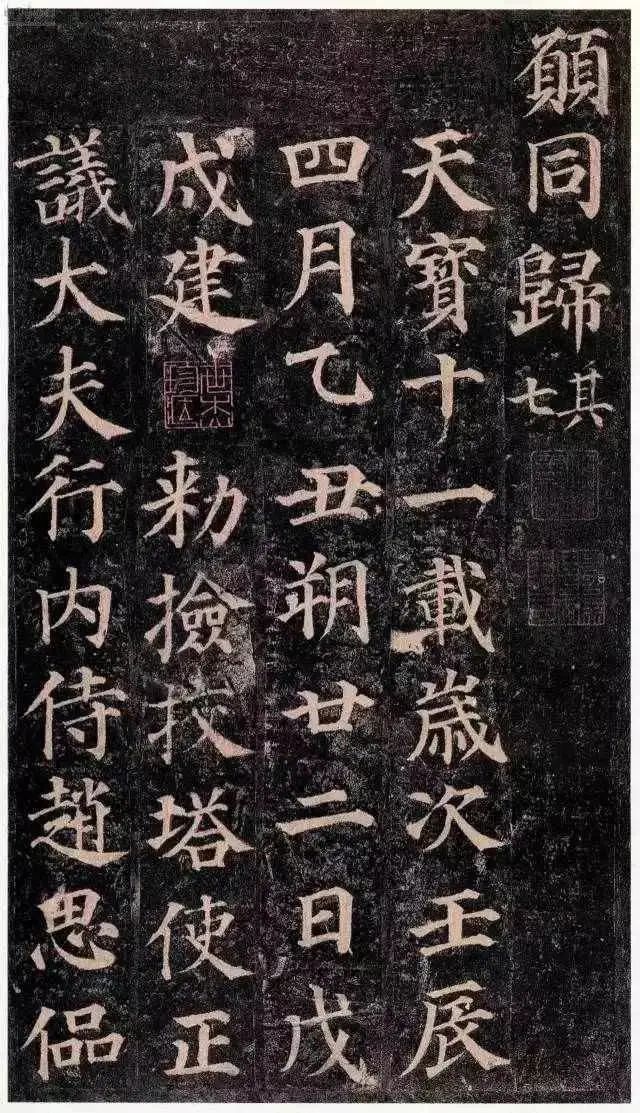 願同歸其七
天寶十一載嵗次壬辰
四月乙丑朔廿二日戊
戌建 勑撿挍塔使正
議大夫行内侍趙思偘